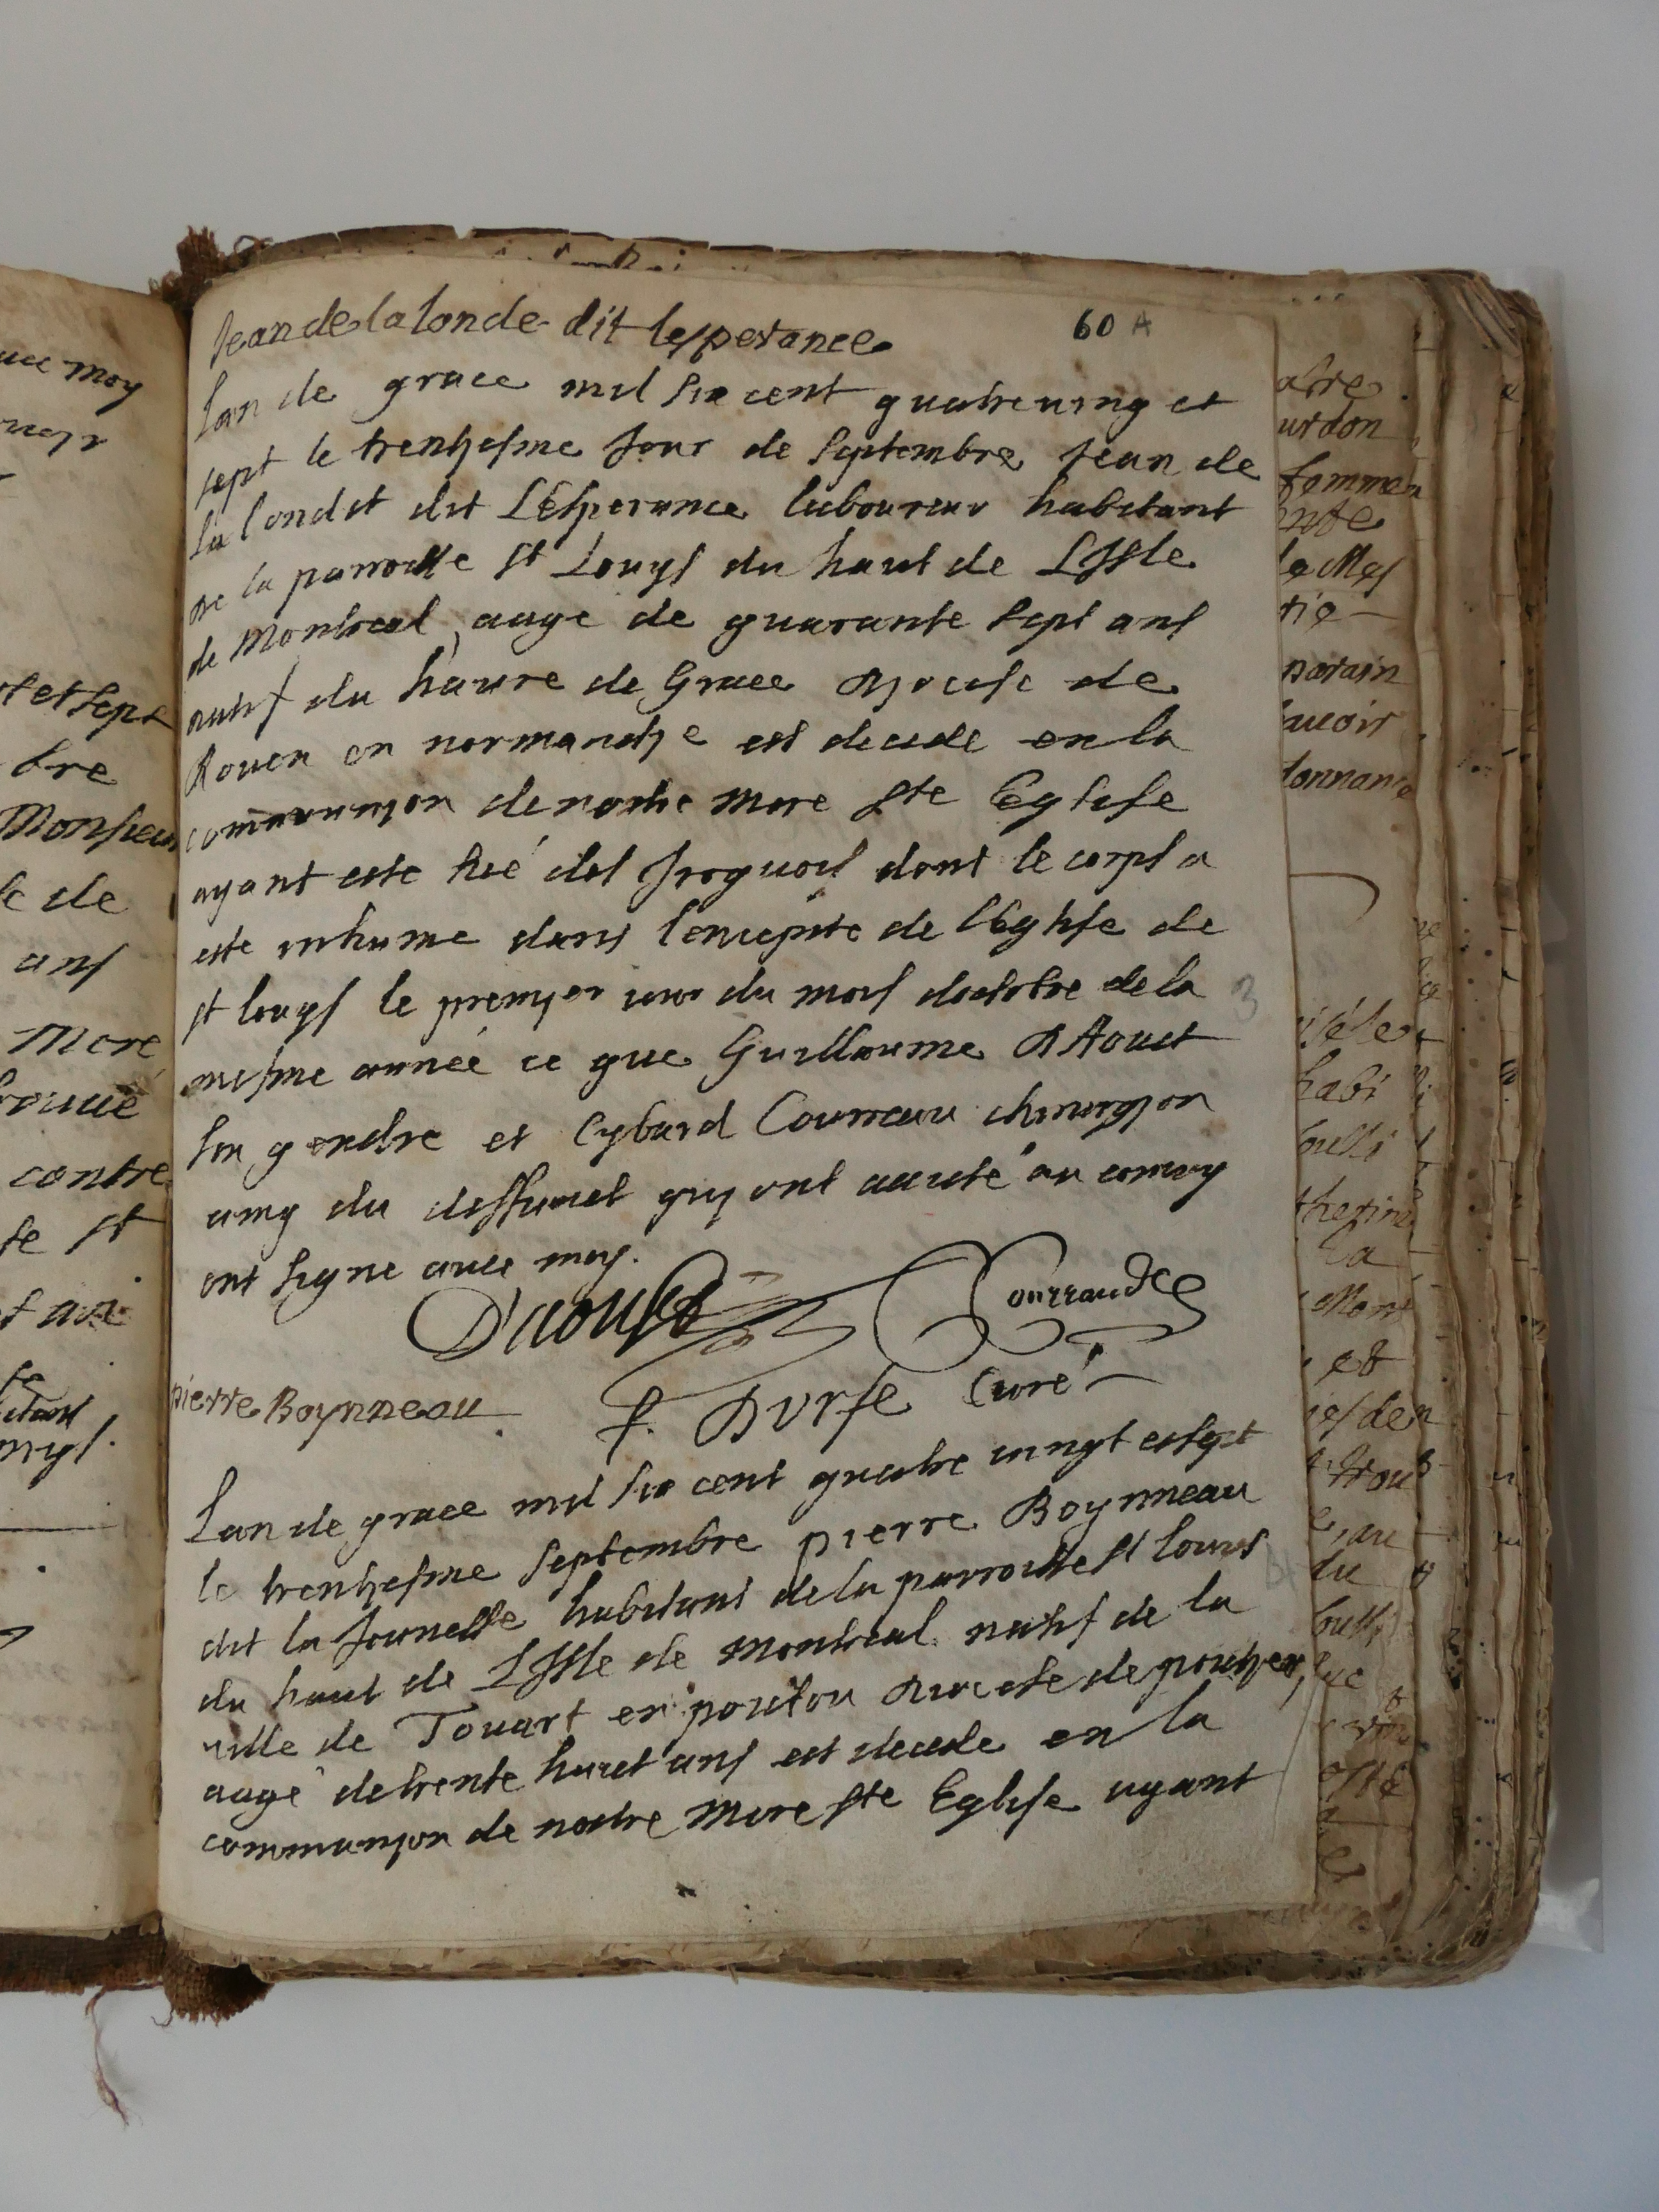 Jean de la londe dit lesperance
60 A
Lan de grace mil six cent quatreving et
sept le trentiesme Jour de Septembre Jean de
La londe dit LEsperance laboureur habitant
De la parroisse St Louys du haut de LIsle
de Montreal, aagé de quarante Sept ans
natif du haure de Grace Diocese de
Rouen en normandie est decede en la
communion de nostre mere Ste Eglise
ayant este tué des Iroquois dont le corps a
este inhume dans lenceinte de lEglise de
St louys le premier iour du mois doctobre de la
mesme année ce que Guillaume DAoust
son gendre et Cybard Courreau chirurgion
amy du deffunct qui ont assisté au convoy
ont signe avec moy.
D'aoust Courraud
pierre Boynneau
f. DUrfe Curé
Lan de grace mil six cent quatre vingt et sept
le trentiesme Septembre pierre Boynneau
dit la Jeunesse habitant de la parroisse St louis
du haut de LIsle de Montreal natif de la
ville de Touart en poitou Diocese de poitier,
aagé de trente huict ans est decede en la
communion de nostre mere Ste Eglise ayant